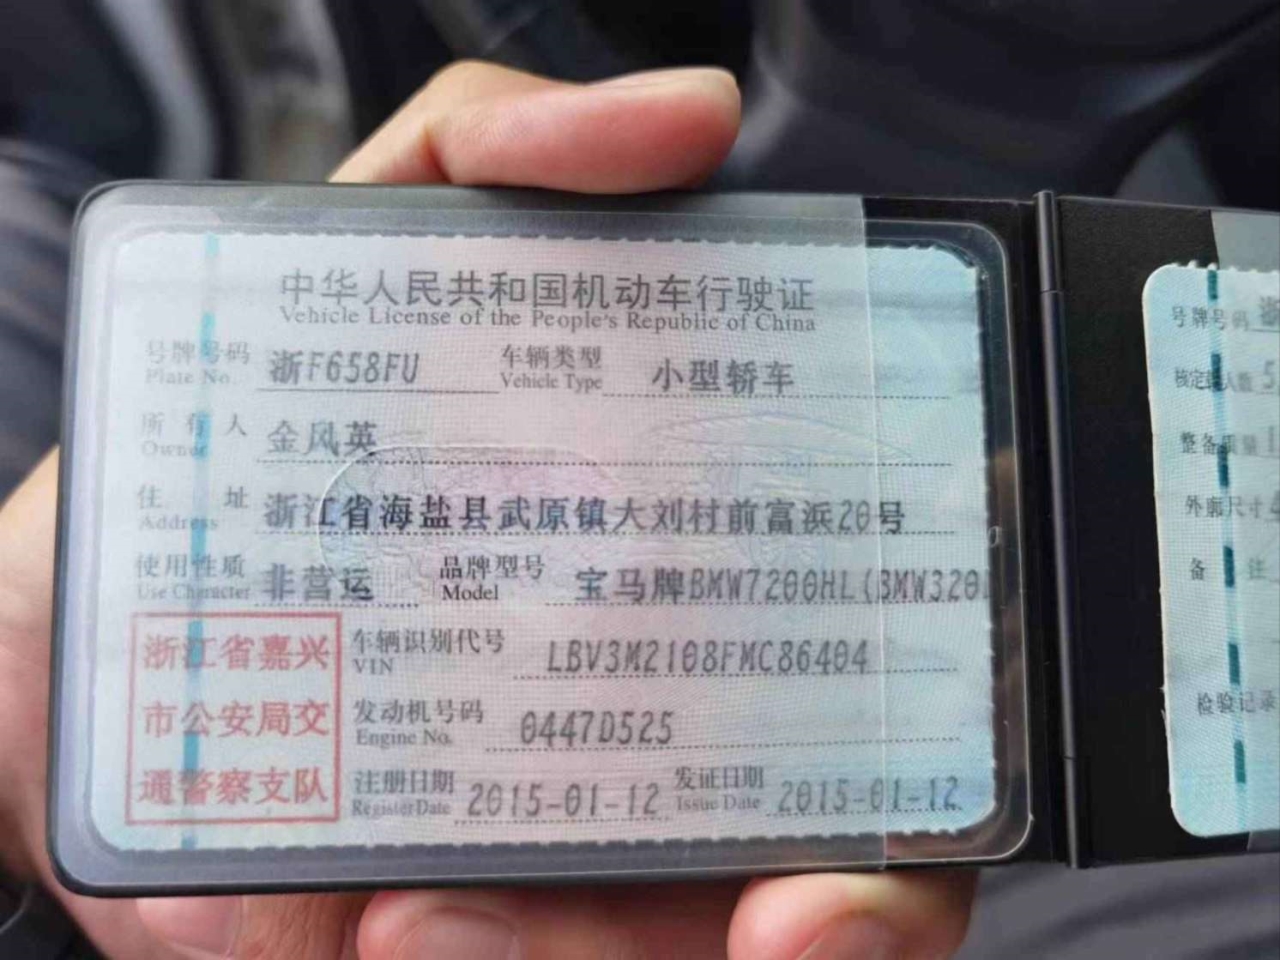 中华人民共和国机动车行驶证
Vehicle License of the People's Republic of China
号牌号码 浙F658FU 车辆类型 小型轿车
Plate No. Vehicle Type
所有人 金风英
Owner
住址 浙江省海盐县武原镇大刘村前富浜20号
Address
使用性质 非营运 品牌型号 宝马牌BMW7200HL(BMW320
Use Character Model
浙江省嘉兴
市公安局交
通警察支队
车辆识别代号 LBV3M2108FMC86404
VIN
发动机号码 0447D525
Engine No.
注册日期 2015-01-12 发证日期 2015-01-12
Register Date Issue Date
号牌号码 浙
核定载人数 5
整备质量 1
外廓尺寸
备注
检验记录